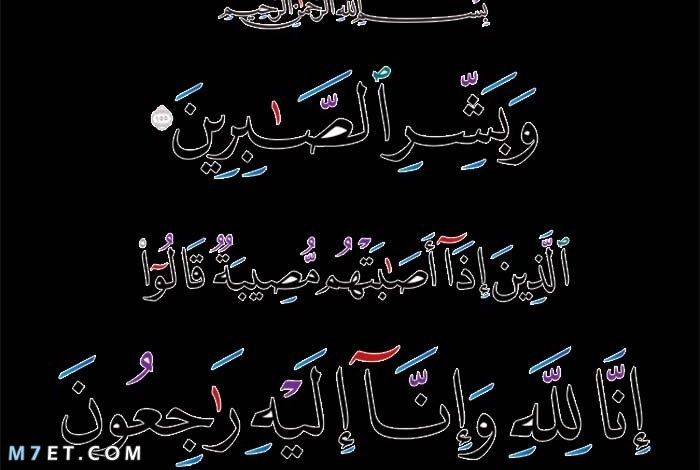 بِسْمِ اللَّهِ الرَّحْمَٰنِ الرَّحِيمِ
وَبَشِّرِ ٱلصَّـٰبِرِينَ ١٥٥
ٱلَّذِينَ إِذَآ أَصَـٰبَتْهُم مُّصِيبَةٌ قَالُوٓا۟
إِنَّا لِلَّهِ وَإِنَّآ إِلَيْهِ رَٰجِعُونَ
M7ET.COM